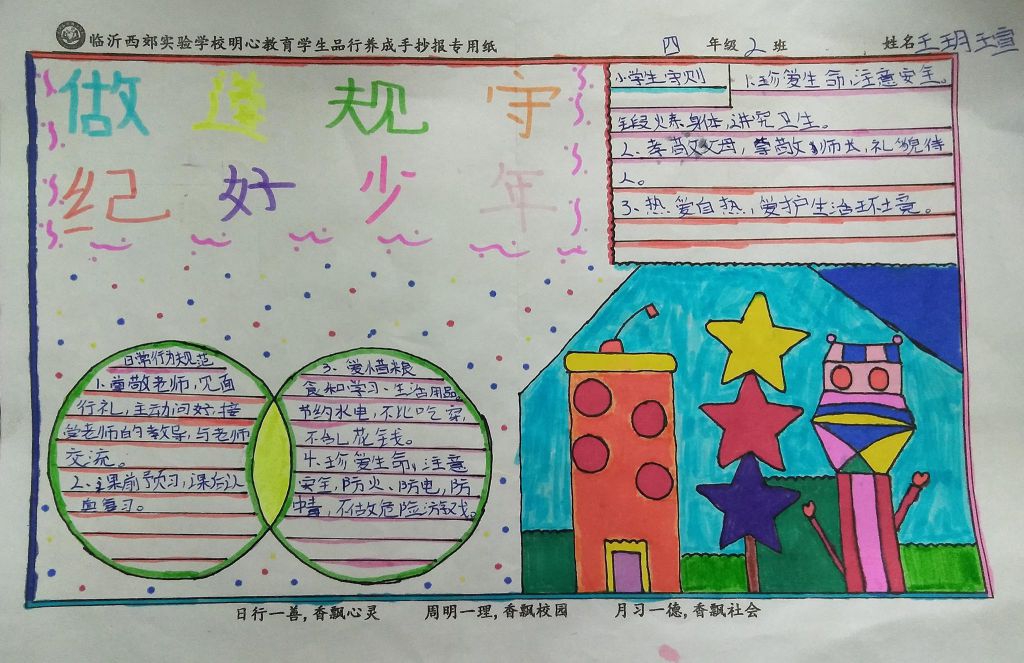 临沂西郊实验学校明心教育学生品行养成手抄报专用纸
四 年级 2 班 姓名 王玥
做遵规守
纪好少年
小学生守则
1.珍爱生命,注意安全。
火东身体,讲究卫生。
2.孝敬父母,尊敬师长,礼貌待
人。
3.热爱自热,爱护生活环境。
日常行为规范
1.尊敬老师,见面
行礼,主动问好,接
受老师的教导,与老师
交流。
2.课前预习,课后认
真复习。
3.爱惜粮
食和学习、生活用品
节约水电,不比吃穿,
不乱花钱。
4.珍爱生命,注意
安全,防火、防电,防
不做危险游戏。
日行一善,香飘心灵 周明一理,香飘校园 月习一德,香飘社会